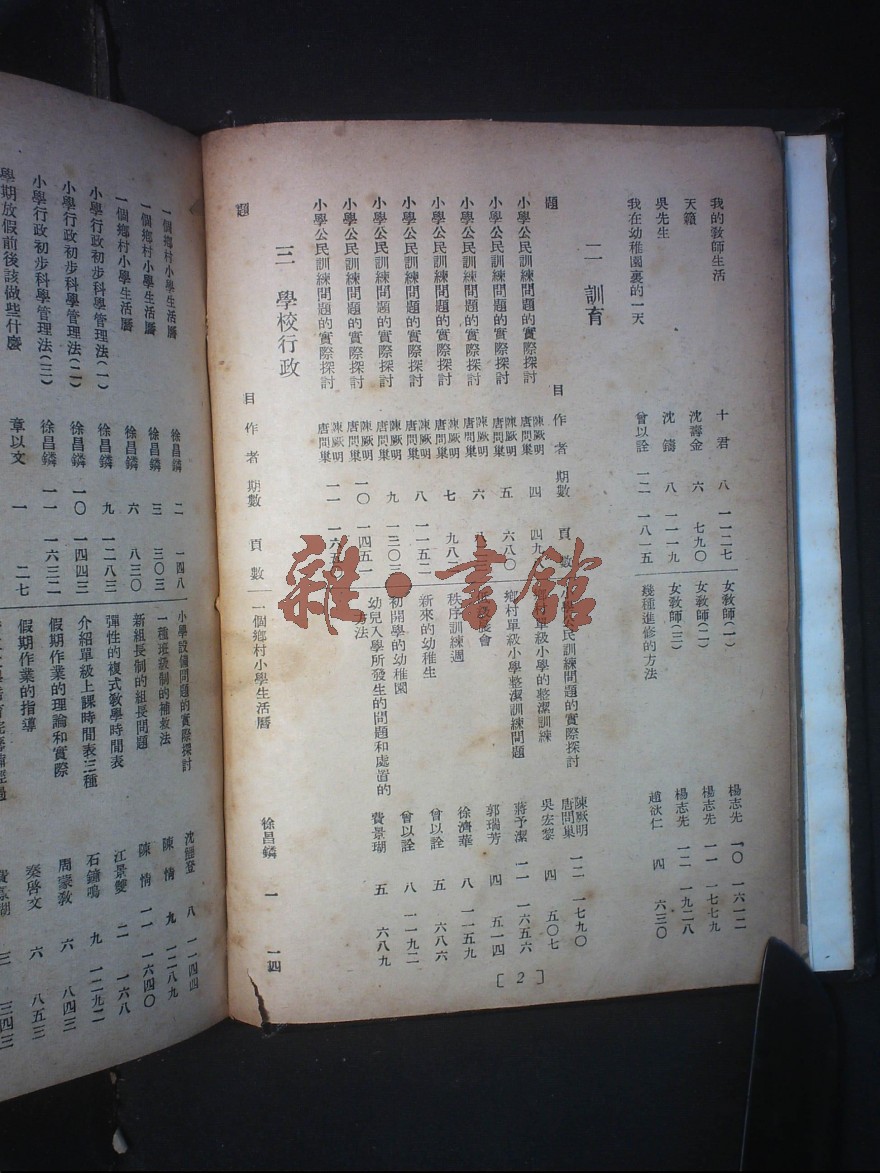 我的教師生活 十君 八 一一二七
天籟 沈壽金 六 七九〇
吳先生 沈鑄 八 一一一九
我在幼稚園裏的一天 曾以詮 一二 一八一五
女教師(一) 楊志先 一〇 一六一二
女教師(二) 楊志先 一一 一七七九
女教師(三) 楊志先 一二 一九二八
幾種進修的方法 趙欲仁 四 六三〇
二 訓育
題目 作者 期數 頁數
小學公民訓練問題的實際探討 陳厥明 唐問巢 四
小學公民訓練問題的實際探討 陳厥明 唐問巢 五 六八〇
小學公民訓練問題的實際探討 陳厥明 唐問巢 六
小學公民訓練問題的實際探討 陳厥明 唐問巢 七 九八二
小學公民訓練問題的實際探討 陳厥明 唐問巢 八 一一五二
小學公民訓練問題的實際探討 陳厥明 唐問巢 九 一三〇三
小學公民訓練問題的實際探討 陳厥明 唐問巢 一〇 一四五一
小學公民訓練問題的實際探討 陳厥明 唐問巢 一一
小學公民訓練問題的實際探討 陳厥明 唐問巢 一二 一七九〇
村單級小學的整潔訓練 吳宏黎 四 五〇七
鄉村單級小學整潔訓練問題 蔣予潔 一一 一六五六
會 郭瑞芳 四 五一四
秩序訓練週 徐濟華 八 一一五九
新來的幼稚生 曾以詮 五 六八六
初開學的幼稚園 曾以詮 八 一一九二
幼兒入學所發生的問題和處置的方法 費景瑚 五 六八九
三 學校行政
題目 作者 期數 頁數
一個鄉村小學生活曆 徐昌鏻 一 一四
[2]
一個鄉村小學生活曆 徐昌鏻 二 一四八
一個鄉村小學生活曆 徐昌鏻 三 三〇三
一個鄉村小學生活曆 徐昌鏻 六 八三〇
小學行政初步科學管理法(一) 徐昌鏻 九 一二八三
小學行政初步科學管理法(二) 徐昌鏻 一〇 一四四三
小學行政初步科學管理法(三) 徐昌鏻 一一 一六三二
學期放假前後該做些什麼 章以文 一 二七
小學設備問題的實際探討 八 一一四四
一種班級制的補救法 陳情 九 一二八九
新組長制的組長問題 陳情 一一 一六四〇
彈性的複式教學時間表 江景雙 二 一六八
介紹單級上課時間表三種 石鏞鳴 九 一二九二
假期作業的理論和實際 周蒙教 六 八四三
假期作業的指導 奕啓文 六 八五三
三 三四三
雜·書館